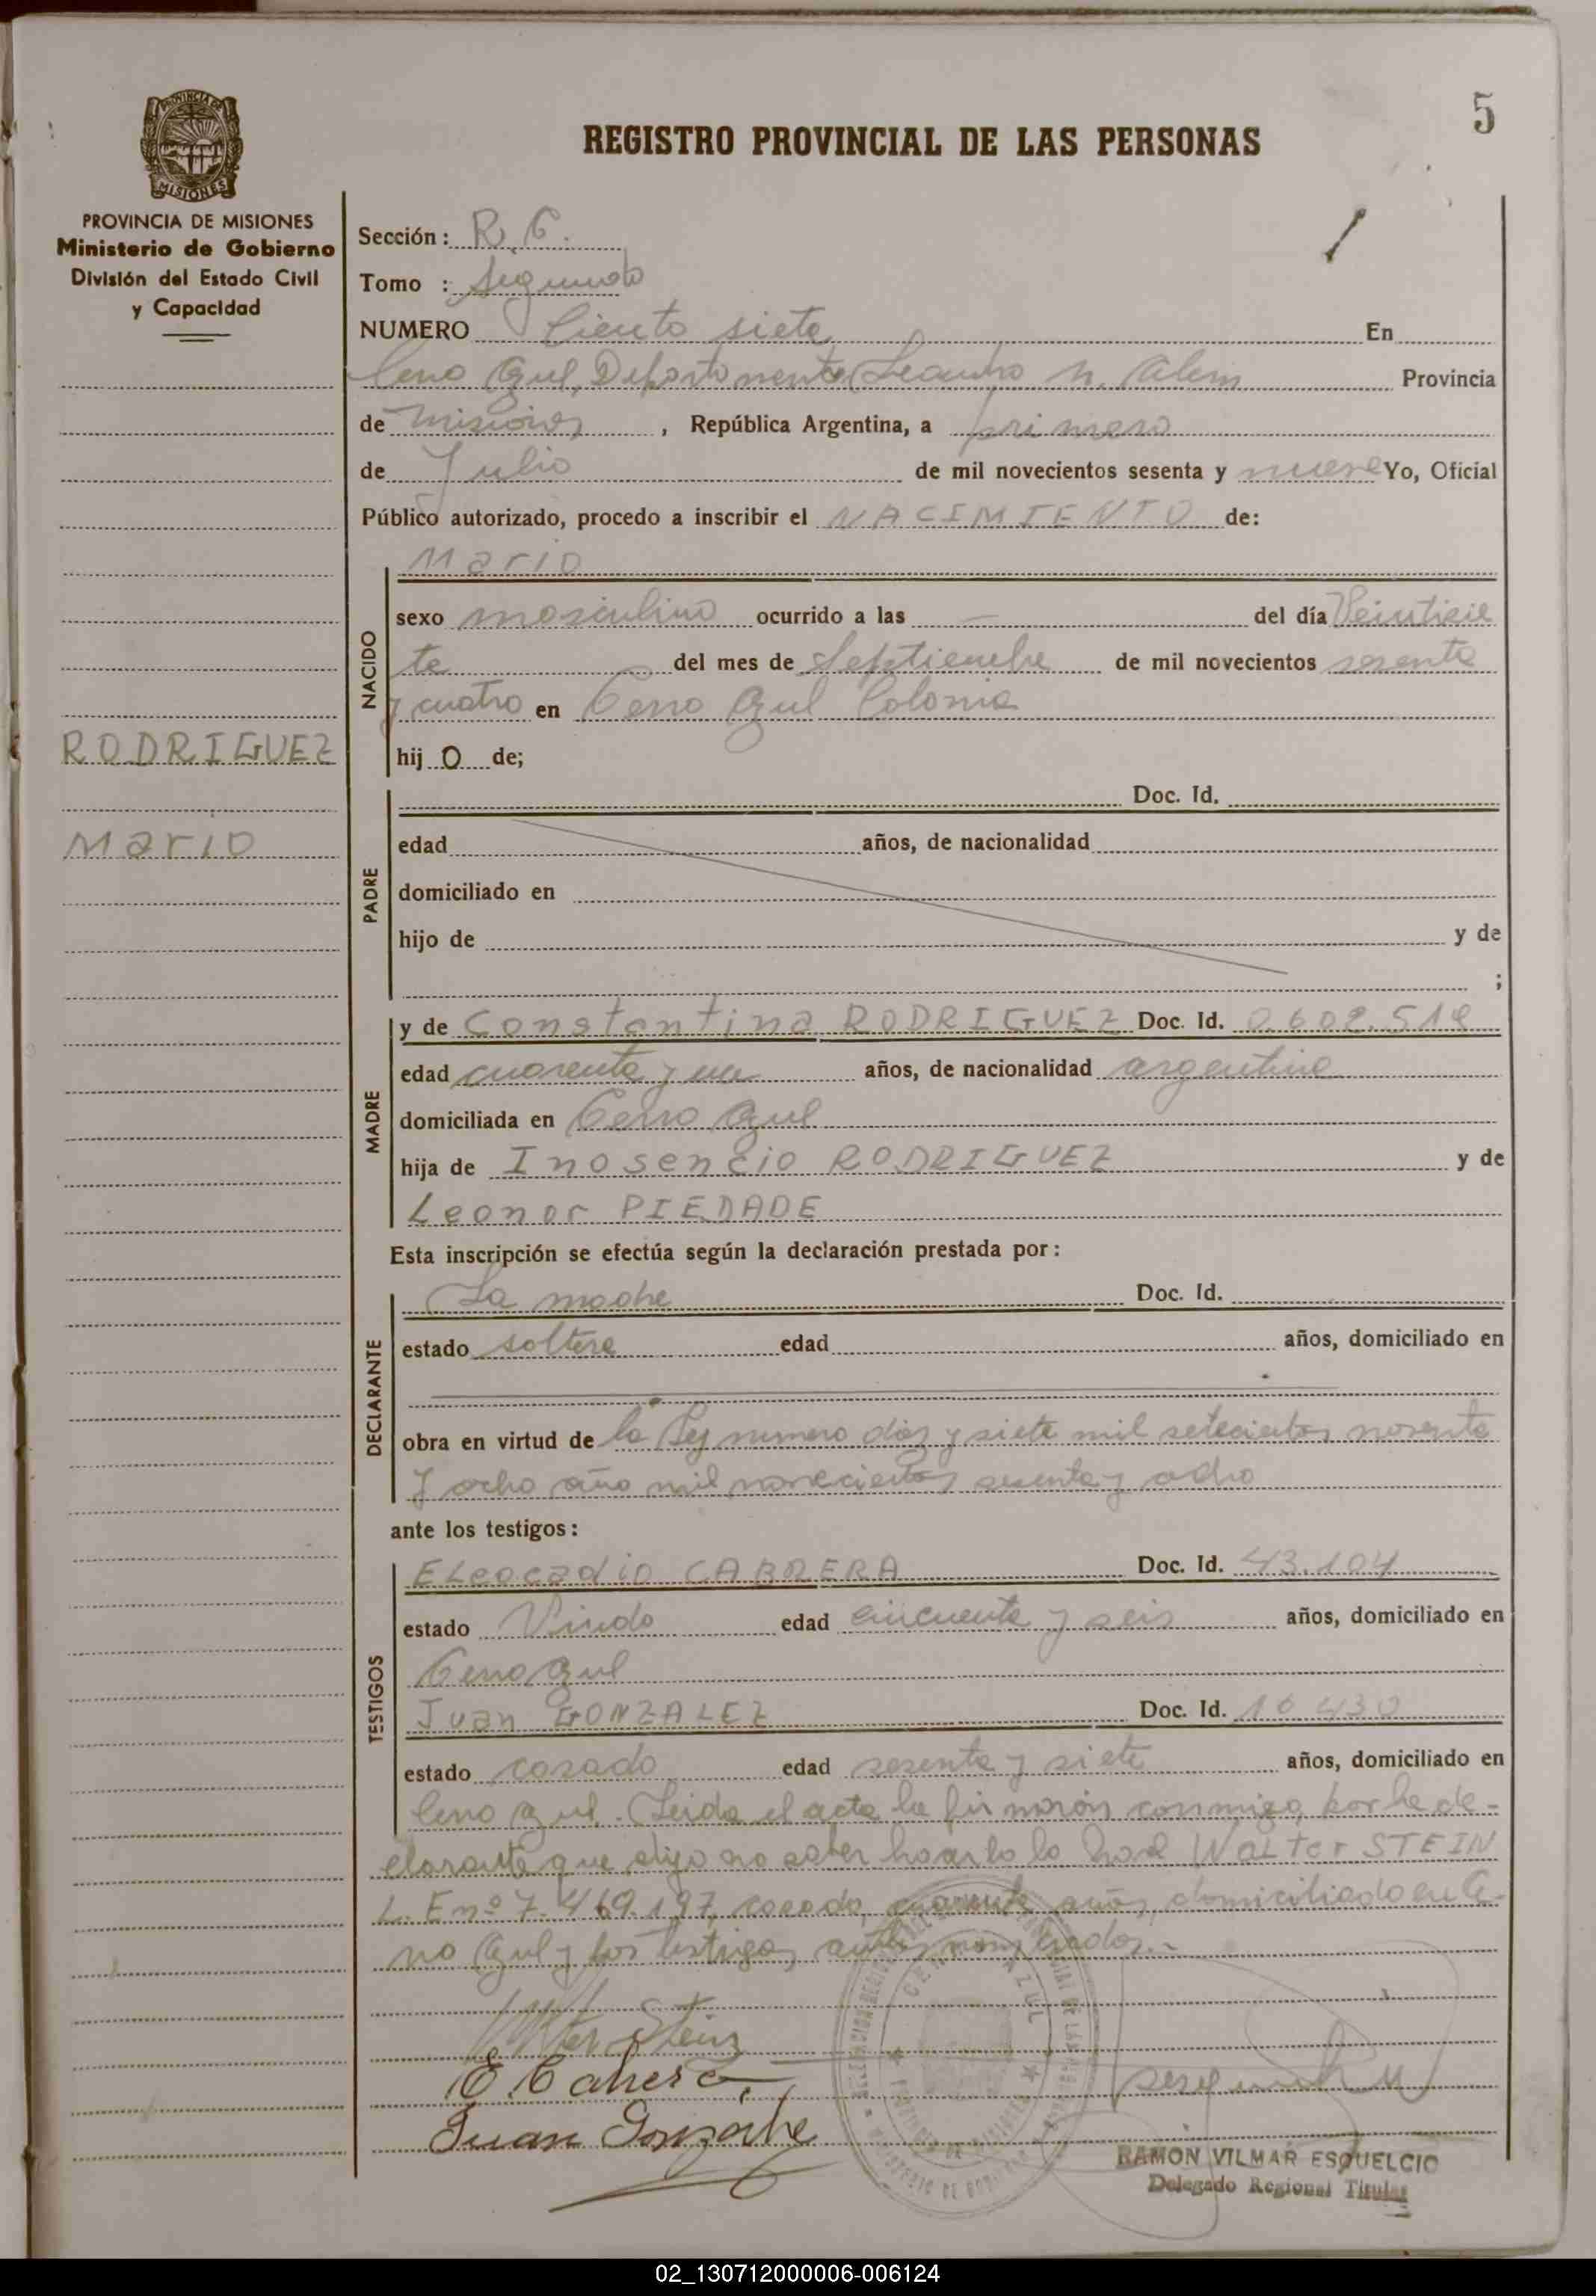 5
REGISTRO PROVINCIAL DE LAS PERSONAS
PROVINCIA DE
MISIONES
PROVINCIA DE MISIONES
Ministerio de Gobierno
División del Estado Civil
y Capacidad
RODRIGUEZ
Mario
Sección: R.C.
Tomo : Segundo
NUMERO Ciento siete En
Cerro Azul, Departamento Leandro N. Alem Provincia
de Misiones, República Argentina, a primero
de Julio de mil novecientos sesenta y nueve Yo, Oficial
Público autorizado, procedo a inscribir el NACIMIENTO de:
NACIDO
Mario
sexo masculino ocurrido a las — del día Veintisie
te del mes de Septiembre de mil novecientos sesenta
y cuatro en Cerro Azul Colonia
hijo de;
PADRE
Doc. Id.
edad años, de nacionalidad
domiciliado en
hijo de y de
;
MADRE
y de Constantina RODRIGUEZ Doc. Id.
edad cuarenta y años, de nacionalidad argentina
domiciliada en Cerro Azul
hija de Inosencio RODRIGUEZ y de
Leonor PIEDADE
Esta inscripción se efectúa según la declaración prestada por:
DECLARANTE
La madre Doc. Id.
estado soltera edad años, domiciliado en
obra en virtud de la Ley numero diez y siete mil setecientos noventa
y ocho año mil novecientos sesenta y ocho
ante los testigos:
TESTIGOS
Eleocadio CABRERA Doc. Id. 43.104
estado Viudo edad cincuenta y seis años, domiciliado en
Cerro Azul
Juan GONZALEZ Doc. Id. 10430
estado casado edad sesenta y siete años, domiciliado en
Cerro Azul. Leida el acta la firmaron conmigo, por la de-
clarante que dijo no saber hacerlo lo hace Walter STEIN
L. E nº 7.469.197, casado, cuarenta años, domiciliado en Ce-
rro Azul y los testigos antes mencionados.-
Walter Stein
E. Cabrera
Juan Gonzalez
RAMON VILMAR ESQUELCIO
Delegado Regional Titular
02_130712000006-006124